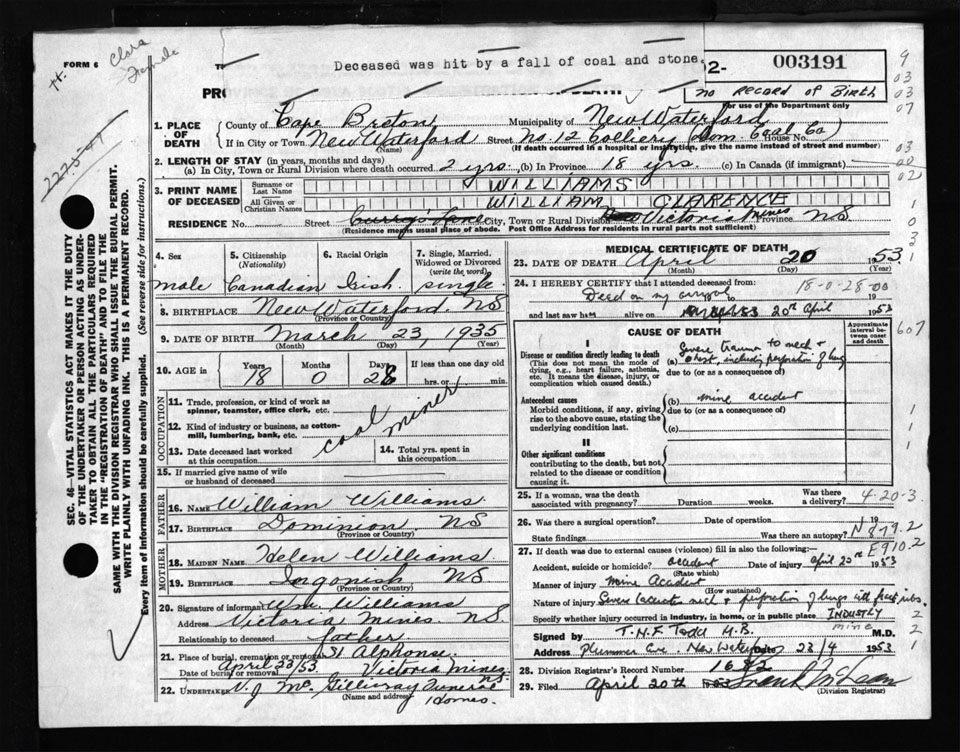 FORM 6
Clara
Deceased was hit by a fall of coal and stone.
2- 003191
no Record of Birth
For use of the Department only
1. PLACE OF DEATH
County of Cape Breton Municipality of New Waterford
If in City or Town New Waterford Street No. 12 Colliery Dom. Coal Co House No.
(Name) (If death occurred in a hospital or institution, give the name instead of street and number)
2. LENGTH OF STAY (in years, months and days)
(a) In City, Town or Rural Division where death occurred 2 yrs. (b) In Province 18 yrs. (c) In Canada (if immigrant)
3. PRINT NAME OF DECEASED
Surname or Last Name WILLIAMS
All Given or Christian Names WILLIAM CLARENCE
RESIDENCE No. Street City, Town or Rural Division Victoria Mines Province NS
(Residence means usual place of abode. Post Office Address for residents in rural parts not sufficient)
4. Sex male
5. Citizenship (Nationality) Canadian
6. Racial Origin Irish
7. Single, Married, Widowed or Divorced (write the word) single
8. BIRTHPLACE New Waterford NS
(Province or Country)
9. DATE OF BIRTH March 23, 1935
(Month) (Day) (Year)
10. AGE in Years 18 Months 0 Days 28 If less than one day old hrs. or min.
OCCUPATION
11. Trade, profession, or kind of work as spinner, teamster, office clerk, etc.
12. Kind of industry or business, as cotton-mill, lumbering, bank, etc.
coal miner
13. Date deceased last worked at this occupation
14. Total yrs. spent in this occupation
15. If married give name of wife or husband of deceased
FATHER
16. NAME William Williams
17. BIRTHPLACE Dominion NS
(Province or Country)
MOTHER
18. MAIDEN NAME Helen Williams
19. BIRTHPLACE Ingonish NS
(Province or Country)
20. Signature of informant Wm. Williams
Address Victoria Mines NS
Relationship to deceased father
21. Place of burial, cremation or removal St Alphonse
Date of burial or removal April 23/53 Victoria Mines NS
22. UNDERTAKER V. J. McGillivray Funeral Homes.
(Name and address)
MEDICAL CERTIFICATE OF DEATH
23. DATE OF DEATH April 20 1953
(Month) (Day) (Year)
24. I HEREBY CERTIFY that I attended deceased from: 18-0-28-00
Dead on my arrival to 19
and last saw h alive on 20th April 1953
CAUSE OF DEATH
Approximate interval between onset and death
I
Disease or condition directly leading to death
(This does not mean the mode of dying, e.g., heart failure, asthenia, etc. It means the disease, injury, or complication which caused death.)
(a) Severe trauma to neck + chest, including perforation of lung
due to (or as consequence of)
Antecedent causes
Morbid conditions, if any, giving rise to the above cause, stating the underlying condition last.
(b) mine accident
due to (or as a consequence of)
(c)
II
Other significant conditions
contributing to the death, but not related to the disease or condition causing it.
25. If a woman, was the death associated with pregnancy? Duration weeks. Was there a delivery? 4-20-3
26. Was there a surgical operation? Date of operation 19
State findings Was there an autopsy? N 879.2
E910.2
27. If death was due to external causes (violence) fill in also the following:—
Accident, suicide or homicide? accident Date of injury April 20th 1953
(State which)
Manner of injury Mine Accident
(How sustained)
Nature of injury Severe neck + perforation of lungs with ribs.
Specify whether injury occurred in industry, in home, or in public place INDUSTRY
mine
Signed by T.N.F. Todd M.B. M.D.
Address Plummer Ave. New Waterford Date 23/4 1953
28. Division Registrar's Record Number
29. Filed April 20th Frank McLean
(Division Registrar)
SEC. 46—VITAL STATISTICS ACT MAKES IT THE DUTY OF THE UNDERTAKER OR PERSON ACTING AS UNDERTAKER TO OBTAIN ALL THE PARTICULARS REQUIRED IN THE "REGISTRATION OF DEATH" AND TO FILE THE SAME WITH THE DIVISION REGISTRAR WHO SHALL ISSUE THE BURIAL PERMIT.
WRITE PLAINLY WITH UNFADING INK. THIS IS A PERMANENT RECORD.
Every item of information should be carefully supplied. (See reverse side for instructions.)
607